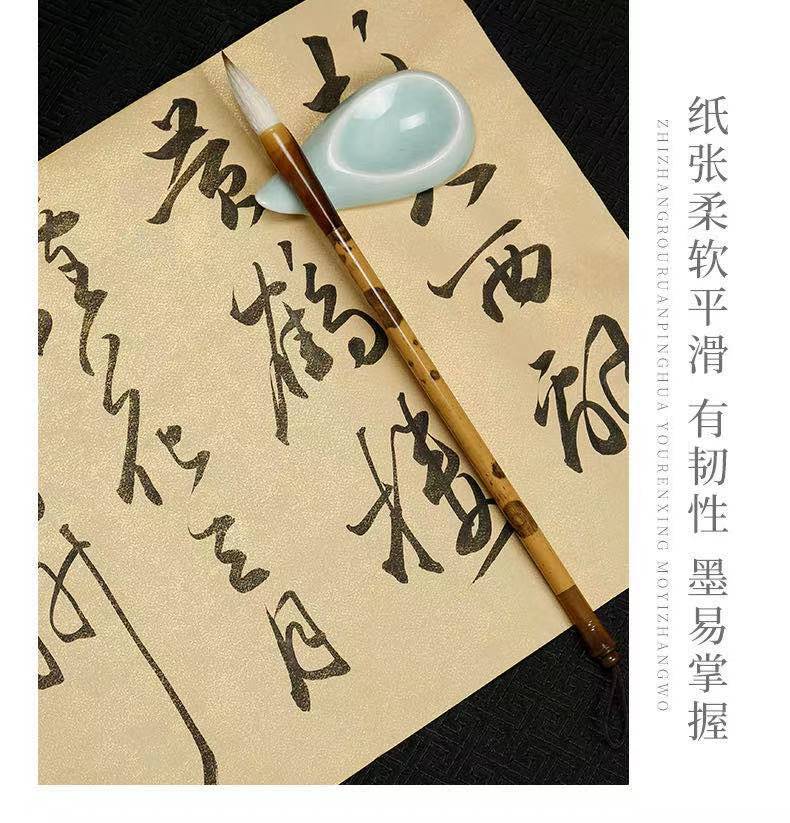 纸张柔软平滑 有韧性 墨易掌握
ZHIZHANGROURUANPINGHUA YOURENXING MOYIZHANGWO
西辞
黄鹤楼
花三月
州